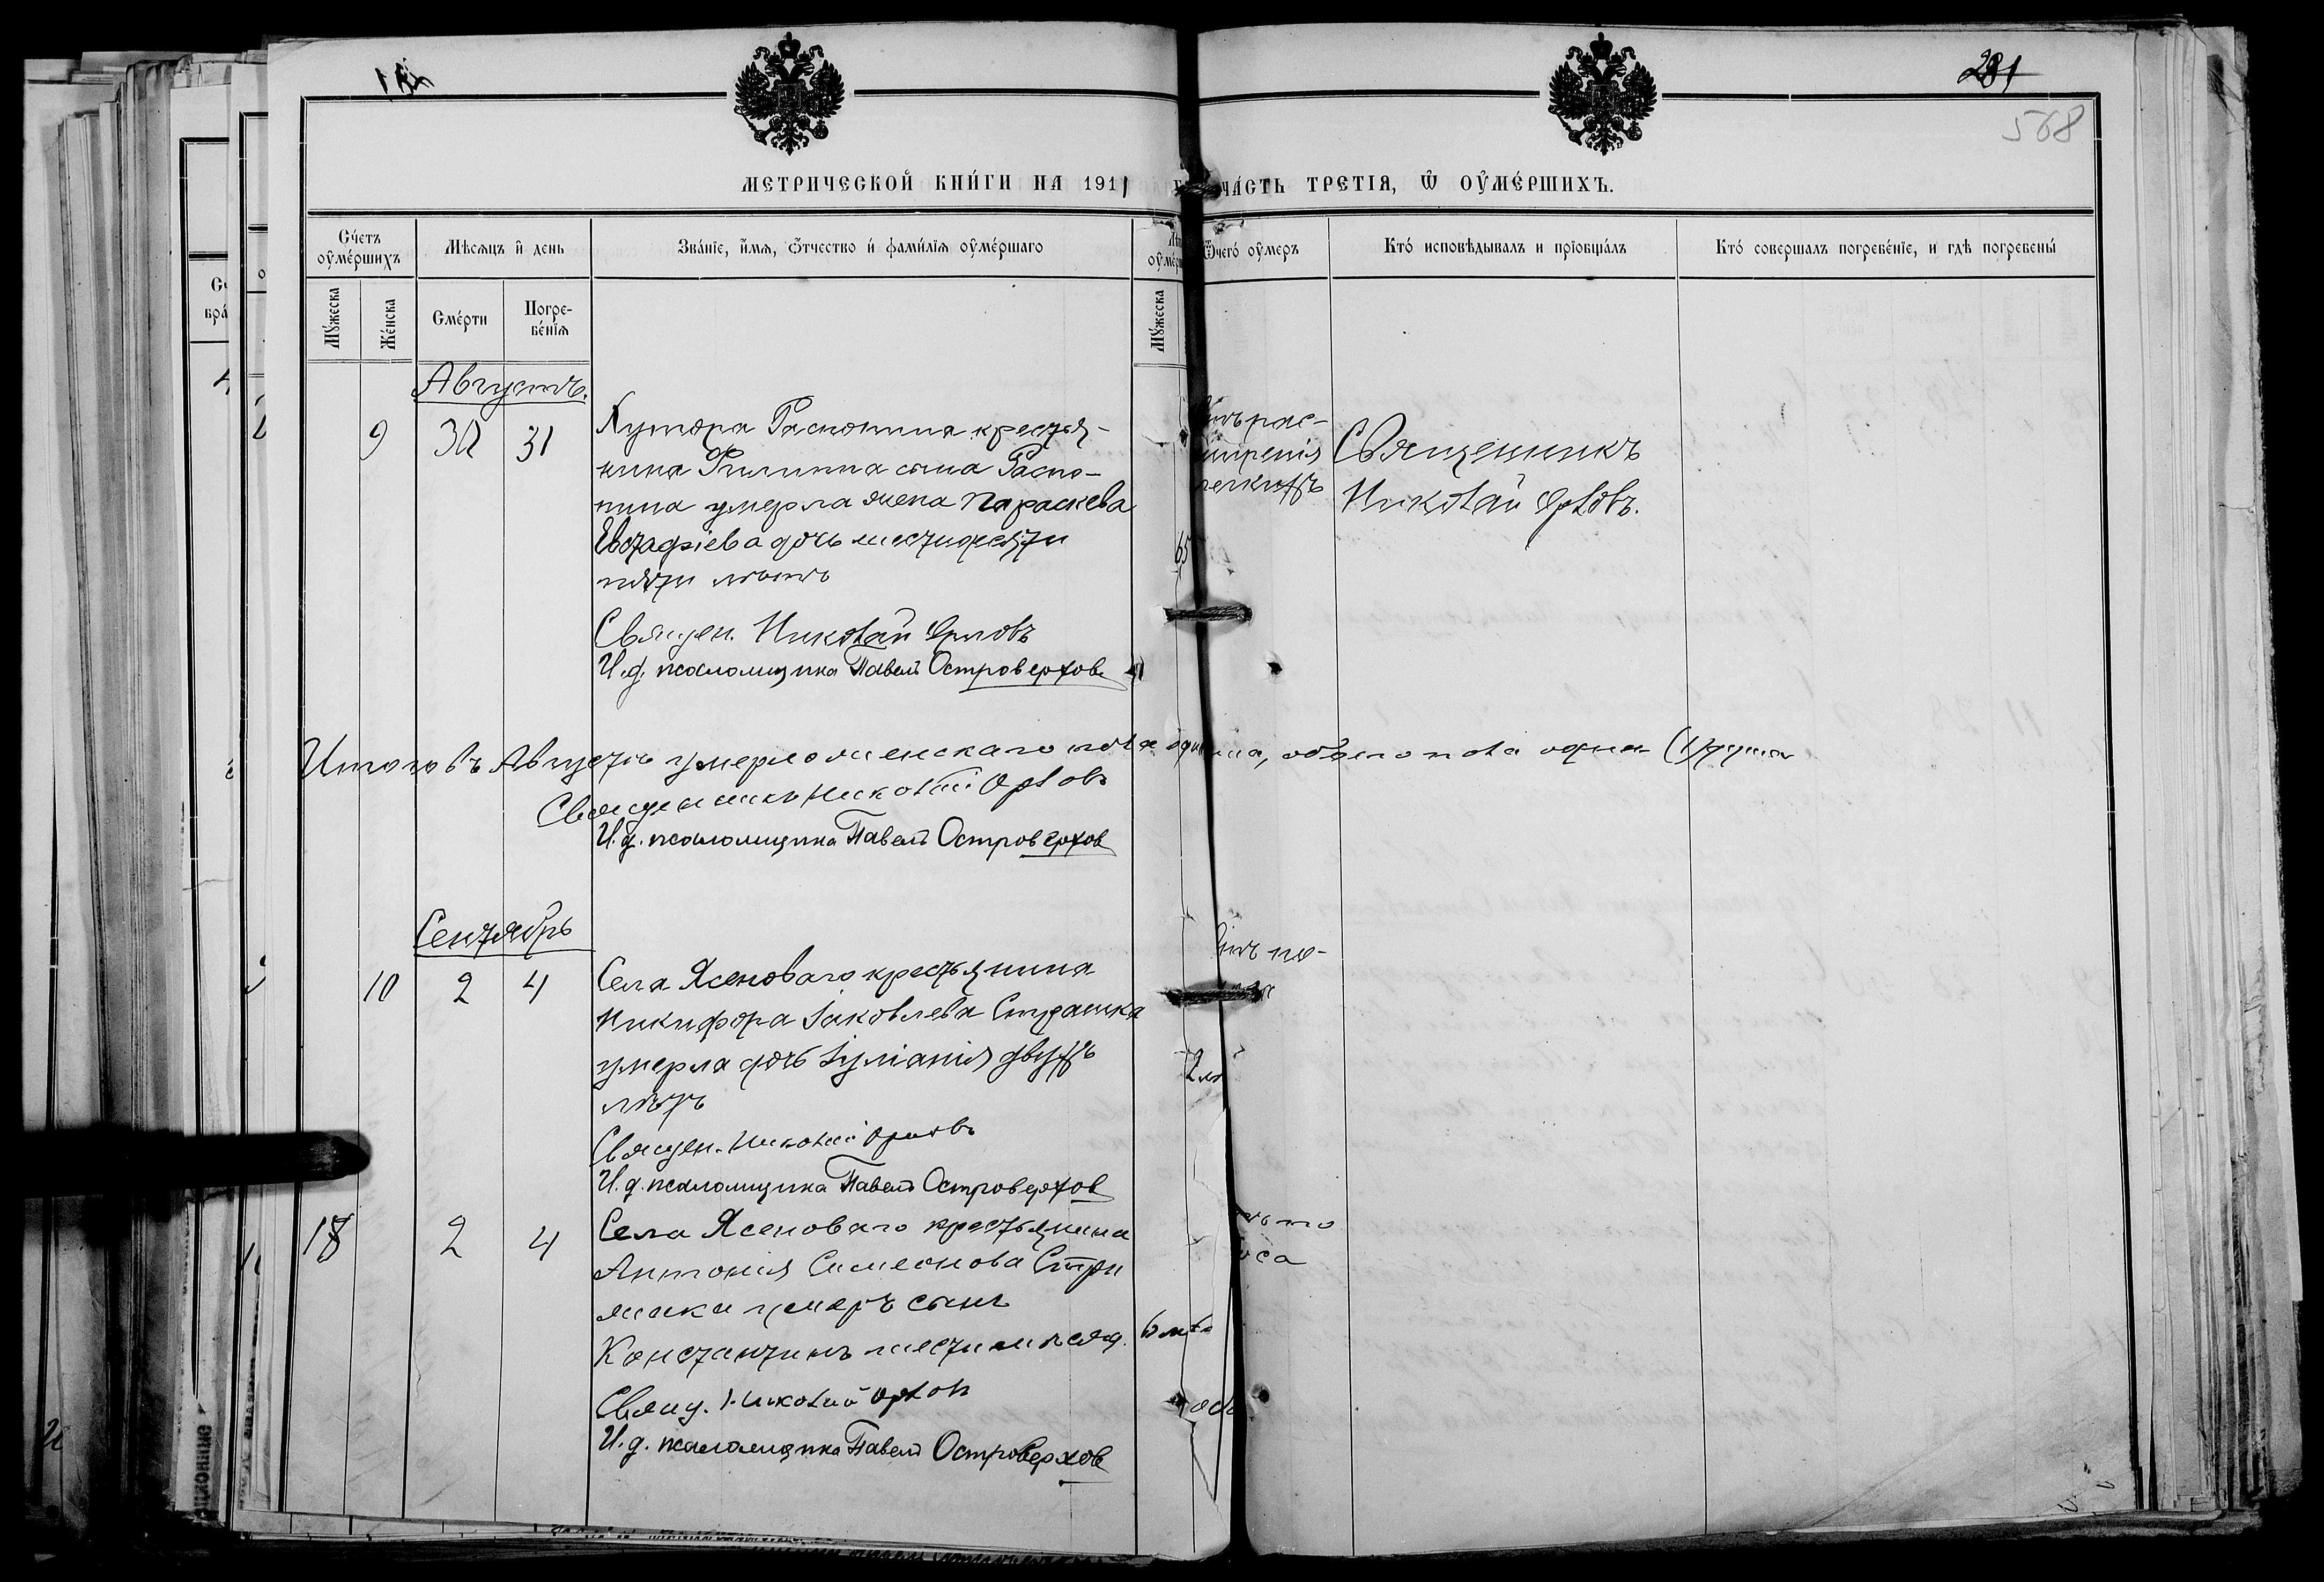 281
568
МЕТРИЧЕСКОЙ КНИ́ГИ НА 1911 ЧА́СТЬ ТРЕТІЯ, Ѿ ОУ҆МЕ́РШИХЪ.
Сче́тъ оу҆ме́ршихъ
Мѣсяцъ и҆ день
Зва́ніе, и҆́мя, ѻ҆́тчество и҆ фами́лія оу҆ме́ршаго
Ѿчегѡ̀ оу҆меръ
Кто́ исповѣ́дывалъ и прїобща́лъ
Кто́ совершалъ погребе́ніе, и гдѣ погребены́
Му́жеска
Же́нска
Сме́рти
Погре-
бе́нія
Му́жеска
Августъ.
9 30 31
Хутора Распопина крестья-
нина Филиппа сына Распо-
пина умерла жена Параскева
Евстафіева дочь шестидесяти
пяти лѣтъ
65
Священникъ
Николай Орловъ.
Священ. Николай Орловъ
И.д. псаломщика Павелъ Островерхов
Итого въ Августѣ умерло женскаго пола одна, обоего пола одна (1) душа
Священникъ Николай Орловъ
И.д. псаломщика Павелъ Островерхов
Сентябрь
10 2 4
Села Ясеноваго крестьянина
Никифора Іаковлева
умерла дочь Іуліанія двухъ
лѣтъ
Священ. Николай Орловъ
И.д. псаломщика Павелъ Островерхов
18 2 4
Села Ясеноваго крестьянина
Антонія Симеонова
умеръ сынъ
Константинъ шести мѣсяц.
Свящ. Николай Орловъ
И.д. псаломщика Павелъ Островерхов